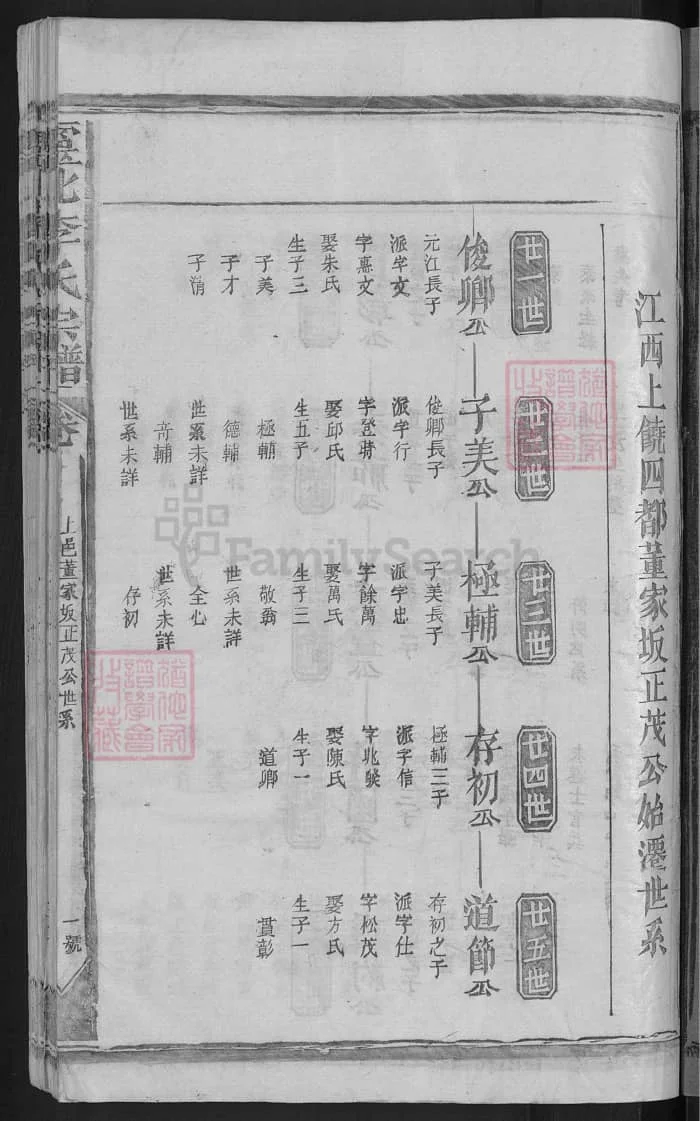 江西上饒四都董家坂正茂公始遷世系
廿一世
俊卿公
元江長子
派字文
字熹文
娶朱氏
生子三
子美
子才
子清
廿二世
子美公
俊卿長子
派字行
字登時
娶邱氏
生五子
極輔
德輔
世系未詳
奇輔
世系未詳
廿三世
極輔公
子美長子
派字忠
字餘萬
娶萬氏
生子三
敬翁
世系未詳
全心
世系未詳
存初
廿四世
存初公
極輔三子
派字信
娶陳氏
生子一
道卿
廿五世
道節公
存初之子
派字仕
字松茂
娶方氏
生子一
貫彰
北李氏宗譜
卷
上邑董家坂正茂公世系
一號
FamilySearch